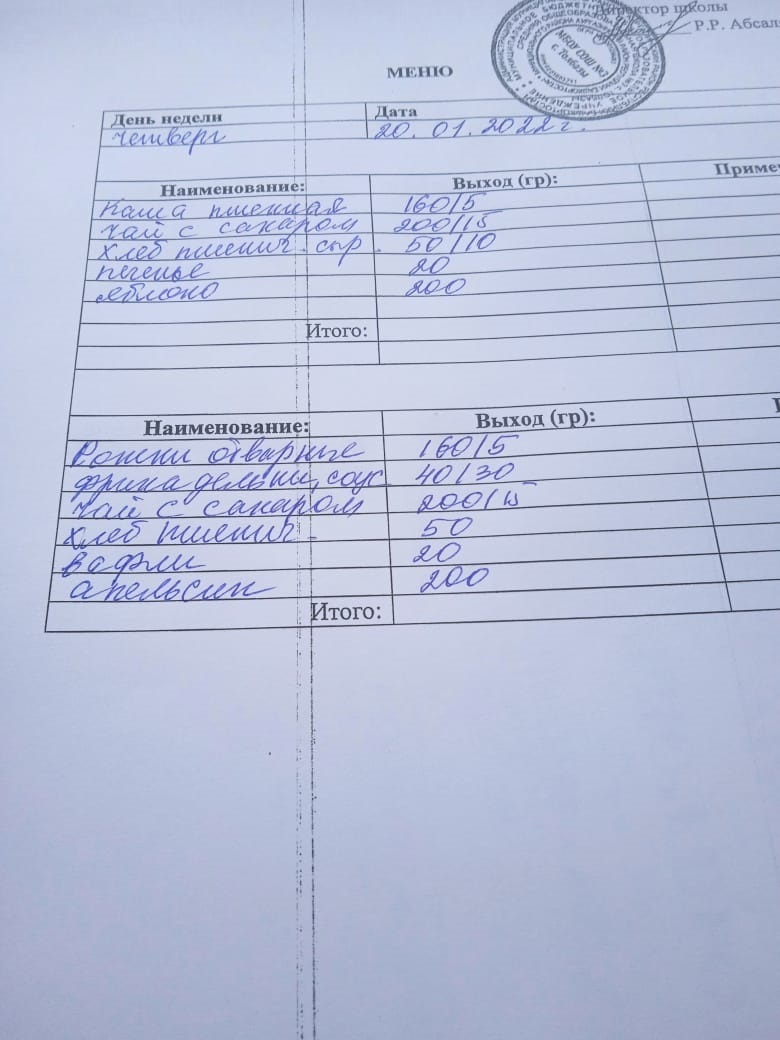 Директор школы
Р.Р. Абсаля
МБОУ СОШ №2
с. Толбазы
МЕНЮ
День недели Дата
четверг 20.01.2022 г.
Наименование: Выход (гр): Примеч
Каша пшенная 160/5
чай с сахаром 200/15
хлеб пшенич. сыр. 50/10
печенье 20
яблоко 200
Итого:
Наименование: Выход (гр):
Рожки отварные 160/5
фрикадельки, соус 40/30
чай с сахаром 200/15
хлеб пшенич. 50
вафли 20
апельсин 200
Итого: